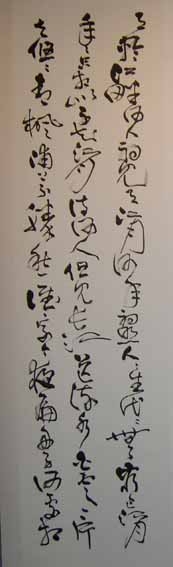 月輪江畔何人初見月江月何年初照人人生代代無窮已江月
年年相似不知江月待何人但見長江送流水白雲一片
去悠悠青楓浦上不勝愁誰家今夜扁舟子何處相